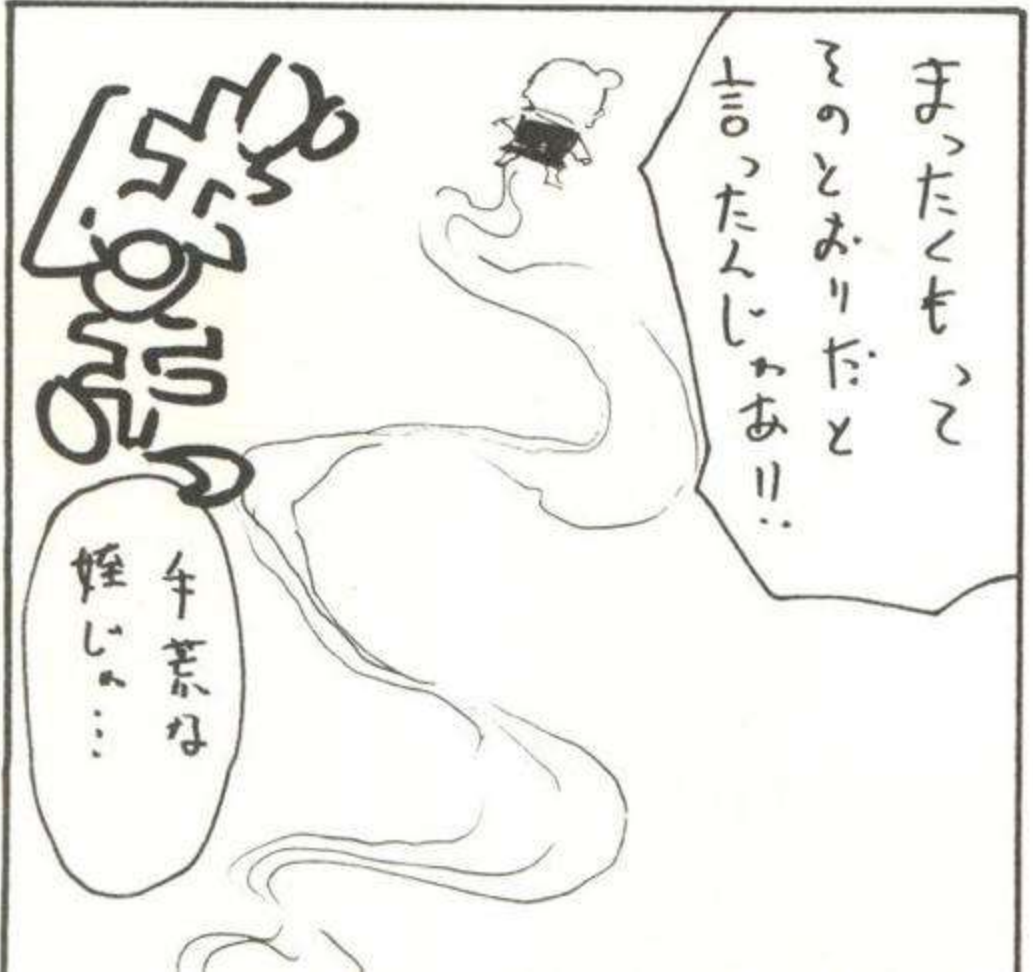 まったくもって
そのとおりだと
言ったんじゃあ!!
手荒な
姪じゃ…